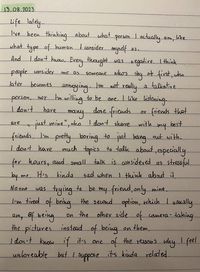 13.08.2023
Life lately.
I've been thinking about what person I actually am, like
what type of human I consider myself as.
And I don't know. Every thought was negative. I think
people consider me as someone who's shy at first, who
later becomes annoying. I'm not really a talkative
person, nor I'm willing to be one. I like listening.
I don't have many close friends or friends that
are "just mine", who I don't share with my best
friends. I'm pretty boring to just hang out with.
I don't have much topics to talk about, especially
for hours, and small talk is considered as stressful
by me. It's kinda sad when I think about it.
No one was trying to be my friend, only mine.
I'm tired of being the second option, which I usually
am, of being on the other side of camera-taking
the pictures instead of being on them.
I don't know if it's one of the reasons why I feel
unloveable but I suppose it's kinda related.